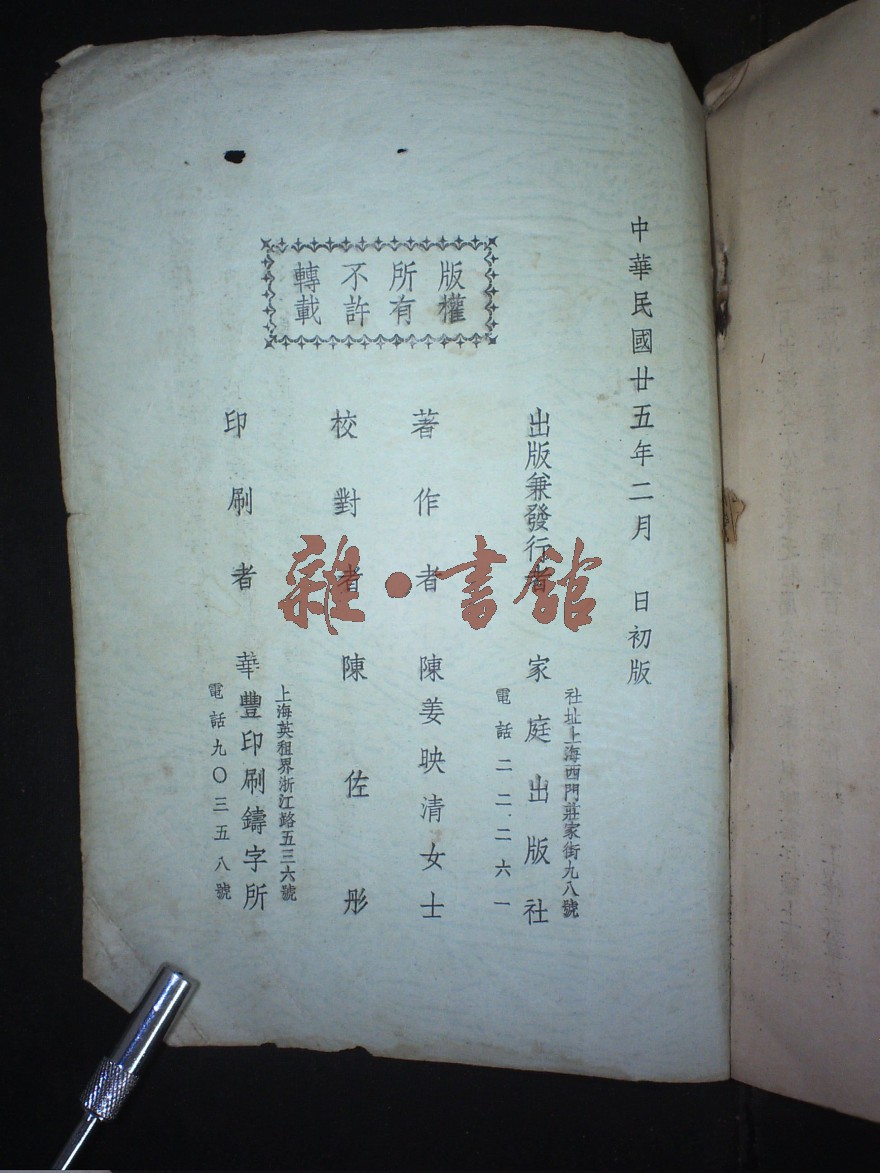 中華民國廿五年二月　日初版
版權
所有
不許
轉載
出版兼發行者　家庭出版社
社址上海西門莊家街九八號
電話二二二六一
著作者　陳姜映清女士
校對者　陳佐彤
印刷者　華豐印刷鑄字所
上海英租界浙江路五三六號
電話九〇三五八號
雜·書館